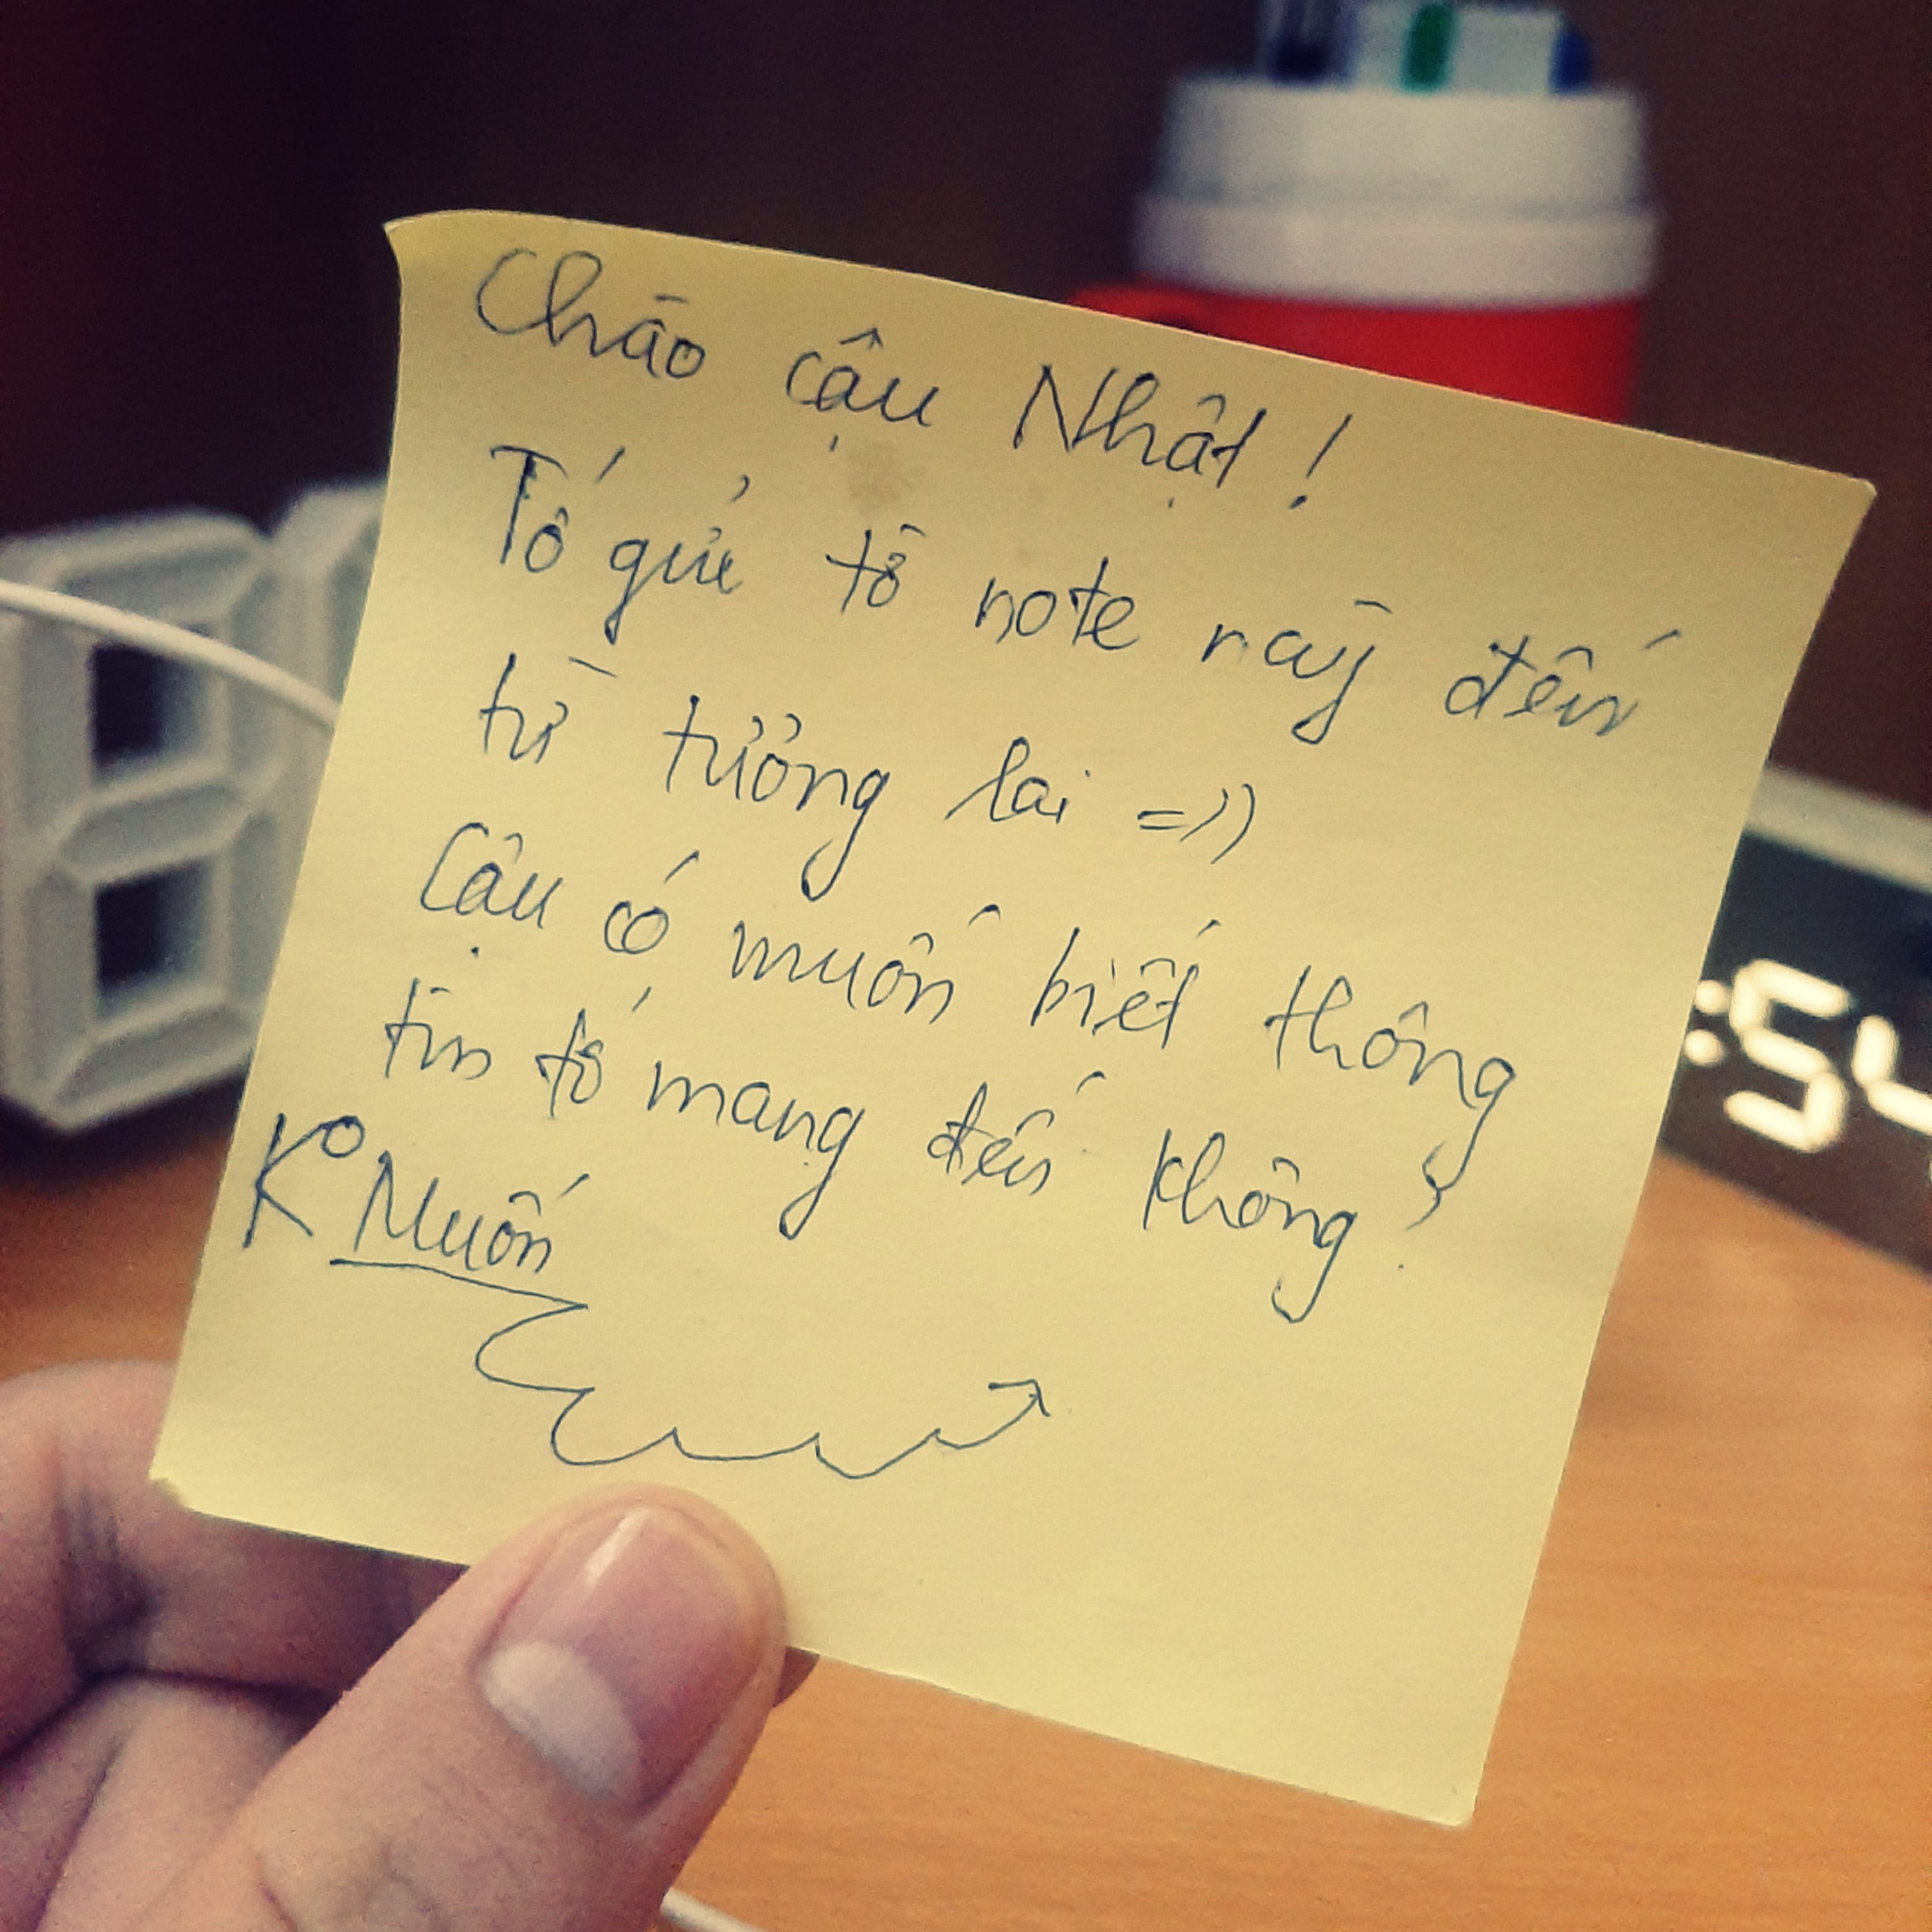 Chào cậu Nhật !
Tớ gửi tờ note này đến
từ tương lai =))
Cậu có muốn biết thông
tin tớ mang đến không?
K° Muốn
:54